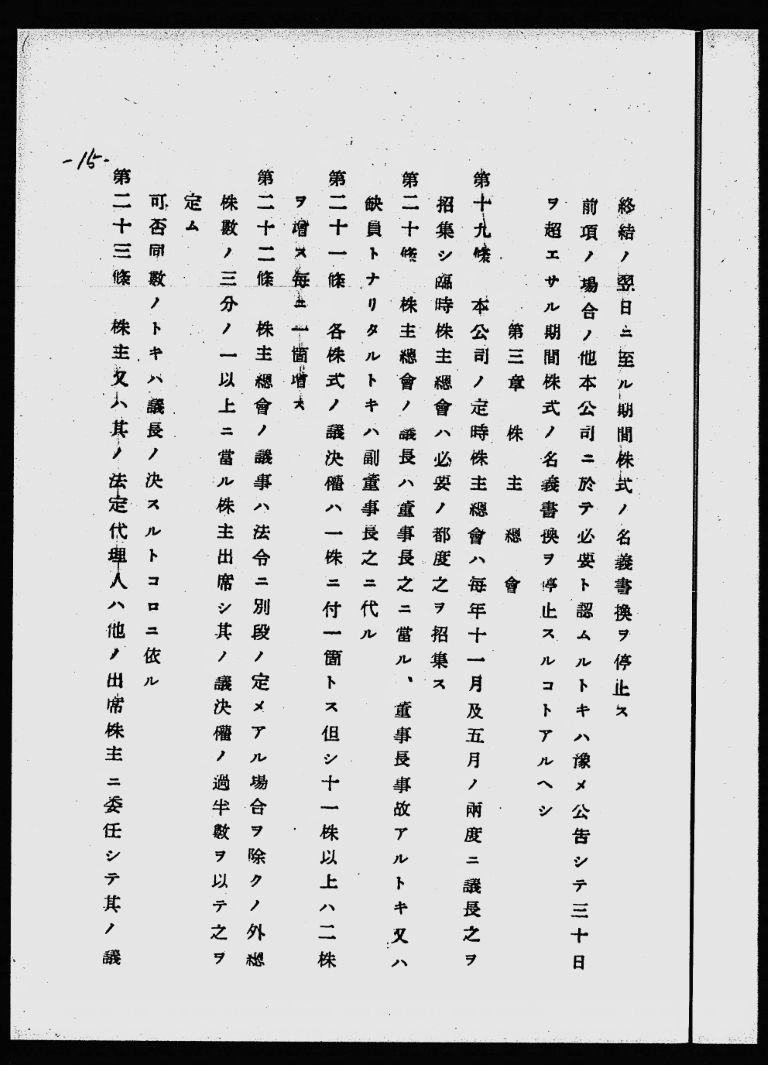 終結ノ翌日ニ至ル期間株式ノ名義書換ヲ停止ス
前項ノ場合ノ他本公司ニ於テ必要ト認ムルトキハ豫メ公告シテ三十日
ヲ超エサル期間株式ノ名義書換ヲ停止スルコトアルヘシ
第三章 株主總會
第十九條 本公司ノ定時株主總會ハ毎年十一月及五月ノ兩度ニ議長之ヲ
招集シ臨時株主總會ハ必要ノ都度之ヲ招集ス
第二十條 株主總會ノ議長ハ董事長之ニ當ル、董事長事故アルトキ又ハ
缺員トナリタルトキハ副董事長之ニ代ル
第二十一條 各株式ノ議決權ハ一株ニ付一箇トス但シ十一株以上ハ二株
ヲ增ス毎ニ一箇增ス
第二十二條 株主總會ノ議事ハ法令ニ別段ノ定メアル場合ヲ除クノ外總
株數ノ三分ノ一以上ニ當ル株主出席シ其ノ議決權ノ過半數ヲ以テ之ヲ
定ム
可否同數ノトキハ議長ノ決スルトコロニ依ル
第二十三條 株主又ハ其ノ法定代理人ハ他ノ出席株主ニ委任シテ其ノ議
-15-